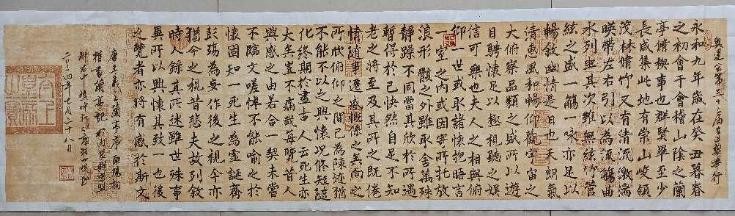 永和九年歲在癸丑暮春
之初會于會稽山陰之蘭
亭脩禊事也群賢畢至少
長咸集此地有崇山峻領
茂林脩竹又有清流激湍
暎帶左右引以為流觴曲
水列坐其次雖無絲竹管
絃之盛一觴一詠亦足以
暢敘幽情是日也天朗氣
清惠風和暢仰觀宇宙之
大俯察品類之盛所以遊
目騁懷足以極視聽之娛
信可樂也夫人之相與俯
仰一世或取諸懷抱晤言
一室之內或因寄所托放
浪形骸之外雖取舍萬殊
靜躁不同當其欣於所遇
暫得於己快然自足不知
老之將至及其所之既倦
情隨事遷感慨係之矣向之
所欣俛仰之間已為陳迹猶
不能不以之興懷況脩短隨
化終期於盡古人云死生亦
大矣豈不痛哉每覽昔人
興感之由若合一契未嘗
不臨文嗟悼不能喻之於
懷固知一死生為虛誕齊
彭殤為妄作後之視今亦
猶今之視昔悲夫故列敘
時人錄其所述雖世殊事
異所以興懷其致一也後
之覽者亦將有感於斯文